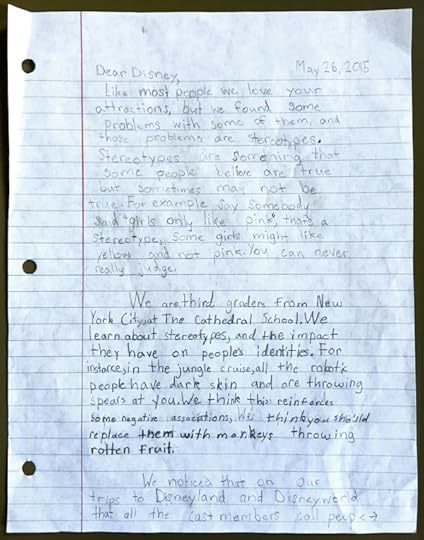 May 26, 2015
Dear Disney,
Like most people we love your
attractions, but we found some
problems with some of them, and
those problems are stereotypes.
Stereotypes are something that
some people believe are true
but sometimes may not be
true. For example say somebody
said "girls only like pink", that's a
stereotype, some girls might like
yellow and not pink. You can never
really judge.
We are third graders from New
York City, at The Cathedral School. We
learn about stereotypes, and the impact
they have on people's identities. For
instance, in the jungle cruise, all the robotic
people have dark skin and are throwing
spears at you. We think this reinforces
some negative associations, We think you should
replace them with monkeys throwing
rotten fruit.
We noticed that on our
trips to Disneyland and Disneyworld
that all the cast members call people →